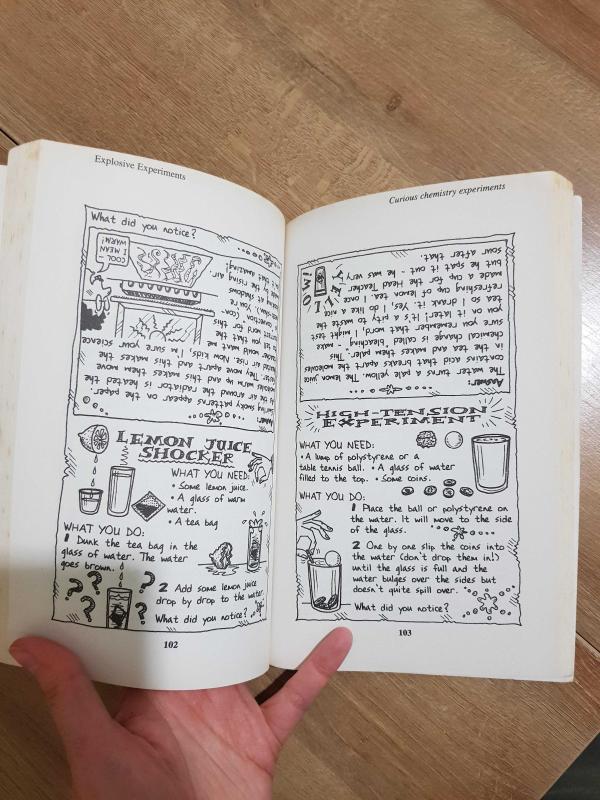 Explosive Experiments
What did you notice?
COOL -
I MEAN
WARM!
Answer:
Swirling smoky patterns appear on the paper.
air around the radiator is heated the
warm up and this makes them move
They move apart and this makes the
air rise. Now, kids, I'm sure your science
would want me
to tell you that the
correct word for this
(Cool -
You're
looking at shadows
by the rising air.
that amazing!
LEMON JUICE
SHOCKER
WHAT YOU NEED:
• Some lemon juice.
• A glass of warm
water.
• A tea bag
WHAT YOU DO:
1 Dunk the tea bag in the
glass of water. The water
goes brown.
2 Add some lemon juice
drop by drop to the water.
What did you notice?
102
Curious chemistry experiments
Answer:
The water turns a pale yellow. The lemon juice
contains acid that breaks apart the molecules
in the tea and makes them paler. This
chemical change is called bleaching - make
sure you remember that word, I might test
you on it later! It's a pity to waste the
tea so I drank it. Yes, I do like a nice
refreshing cup of lemon tea. I once
made a cup for the Head Teacher
but he spat it out - he was very
sour after that.
HIGH-TENSION
EXPERIMENT
WHAT YOU NEED:
• A lump of polystyrene or a
table tennis ball. • A glass of water
filled to the top. • Some coins.
WHAT YOU DO:
1 Place the ball or polystyrene on
the water. It will move to the side
of the glass.
2 One by one slip the coins into
the water (don't drop them in!)
until the glass is full and the
water bulges over the sides but
doesn't quite spill over.
What did you notice?
103